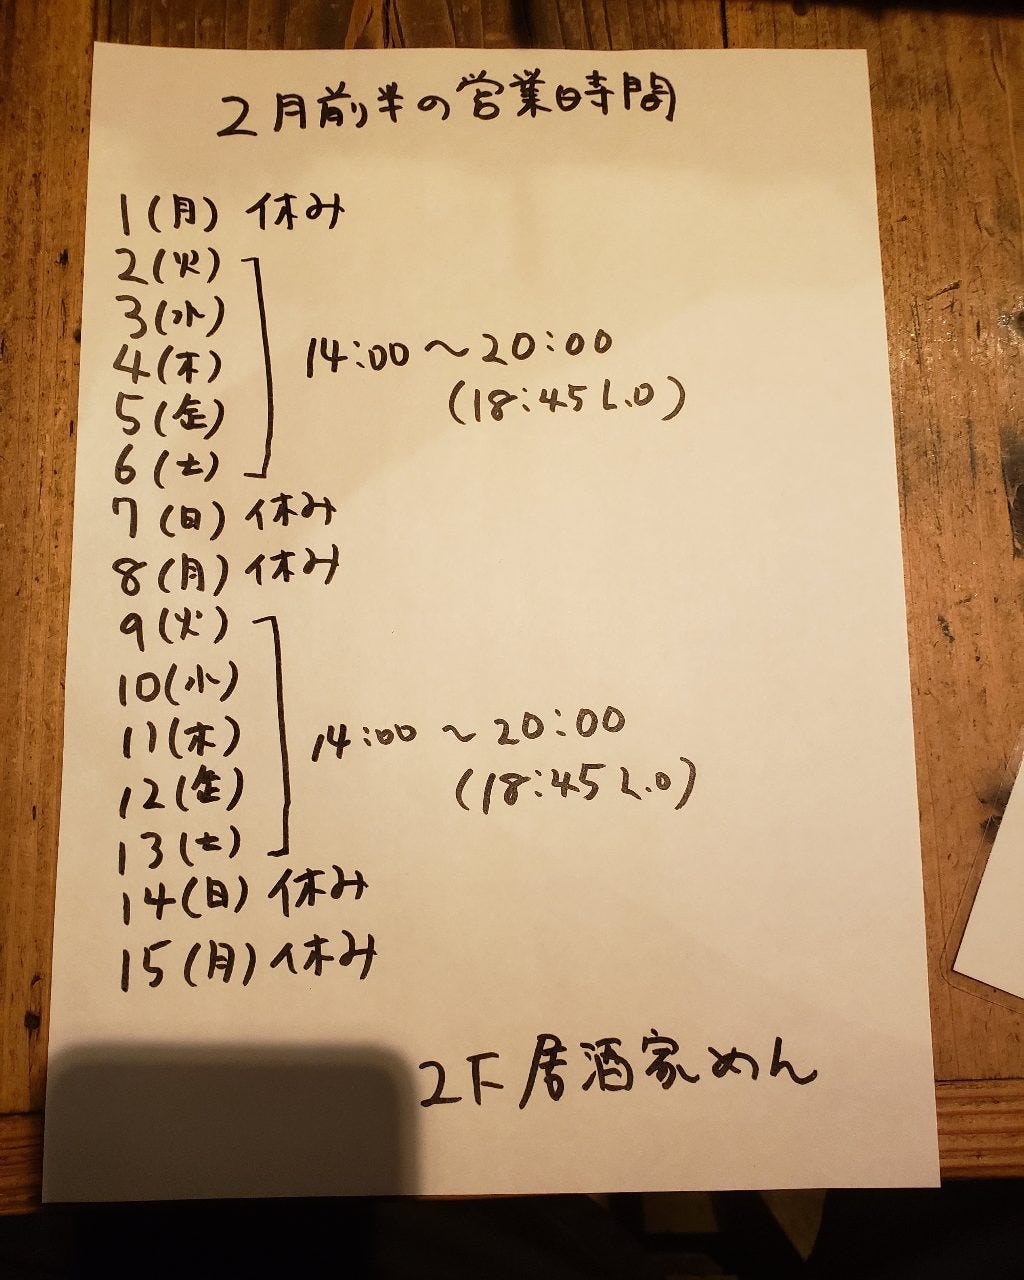 2月前半の営業時間
1(月) 休み
2(火)
3(水)
4(木)
5(金)
6(土)
14:00～20:00
(18:45 L.O)
7(日) 休み
8(月) 休み
9(火)
10(水)
11(木)
12(金)
13(土)
14:00～20:00
(18:45 L.O)
14(日) 休み
15(月) 休み
2F 居酒家めん